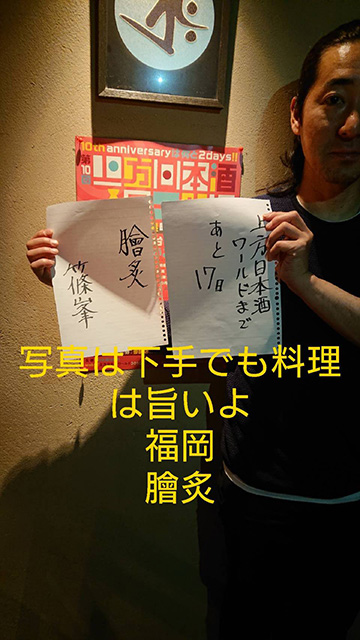 10th anniversary は何と2days!!
第10回
上方日本酒
上方日本酒
ワールドまで
あと
17日
膾炙
篠峯
写真は下手でも料理
は旨いよ
福岡
膾炙